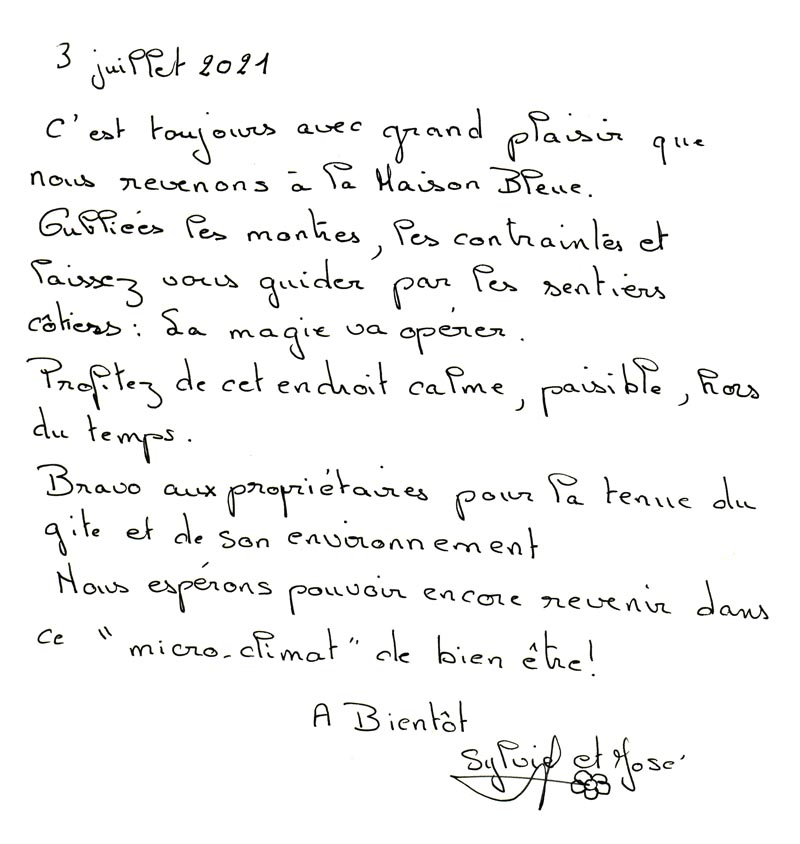 3 juillet 2021
C'est toujours avec grand plaisir que
nous revenons à la Maison Bleue.
Oubliées les montres, les contraintes et
laissez vous guider par les sentiers
côtiers : La magie va opérer.
Profitez de cet endroit calme, paisible, hors
du temps.
Bravo aux propriétaires pour la tenue du
gite et de son environnement
Nous espérons pouvoir encore revenir dans
ce "micro-climat" de bien être !
A Bientôt
Sylvie et José